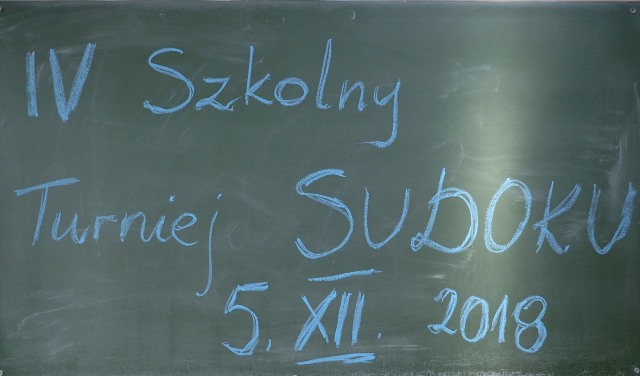 IV Szkolny
Turniej SUDOKU
5. XII. 2018